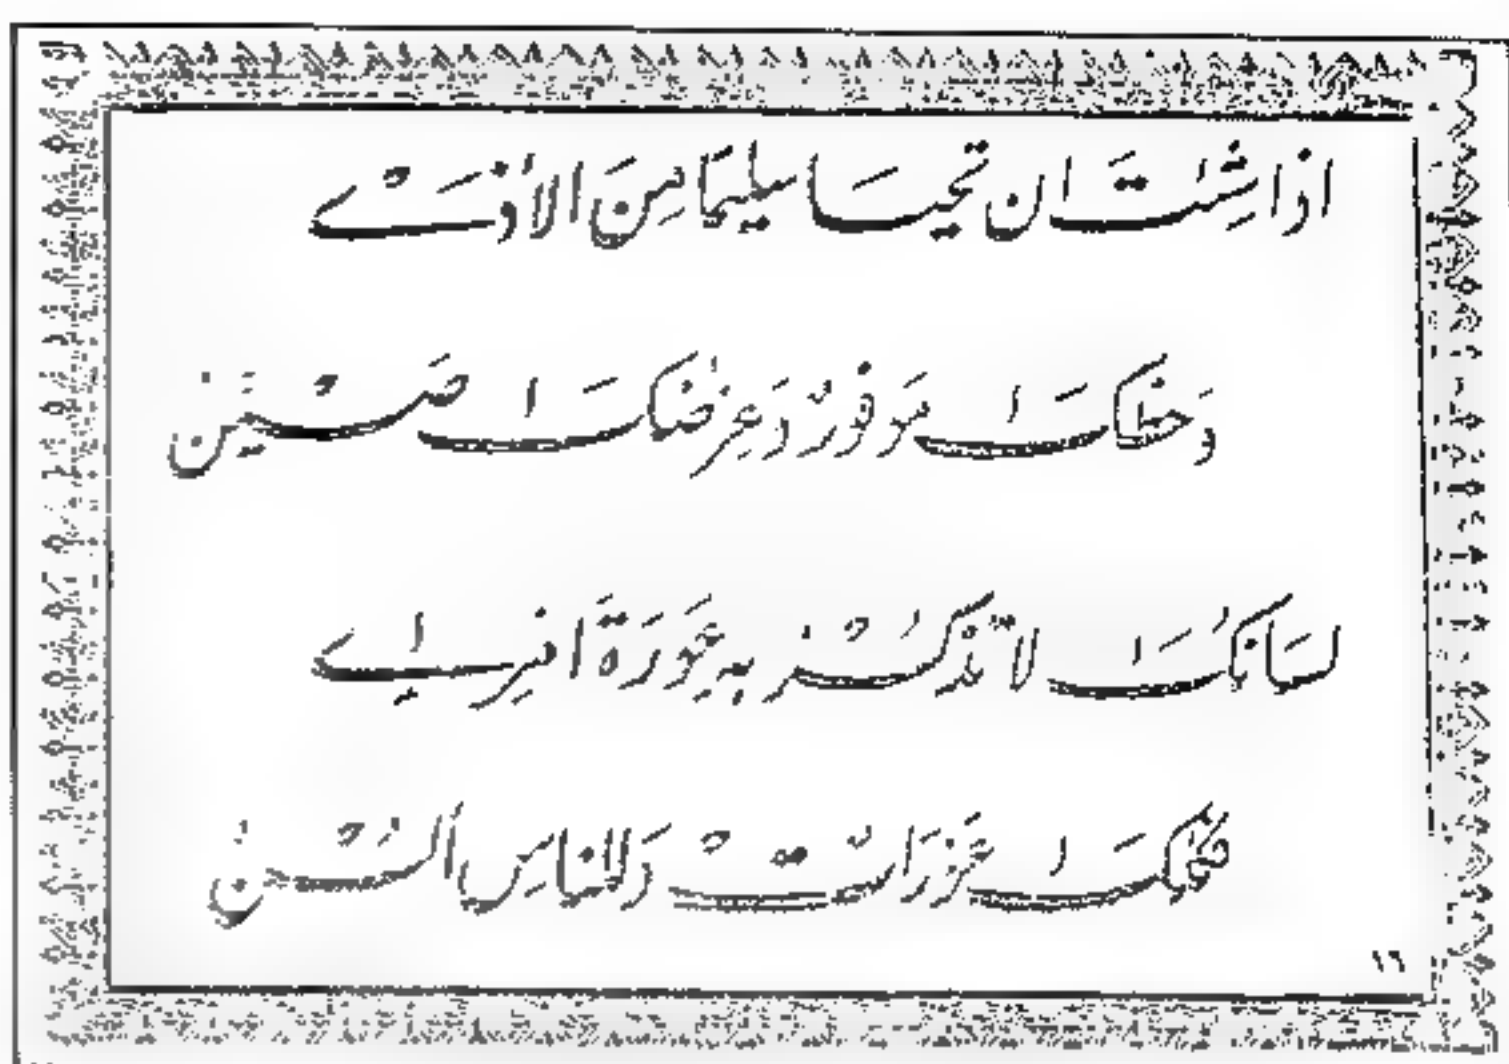 اذا شِئتَ ان تحيَا سليمًا مِنَ الأذَىْ
وَحظكَ مَوفورٌ وَعِرضكَ صَيْنِّ
لسَانكَ لا تَذْكُرْ به عَورَةَ امرِئٍ
فكلكَ عَوْرَاتٌ وَللناسِ ألسُنْ
١٦